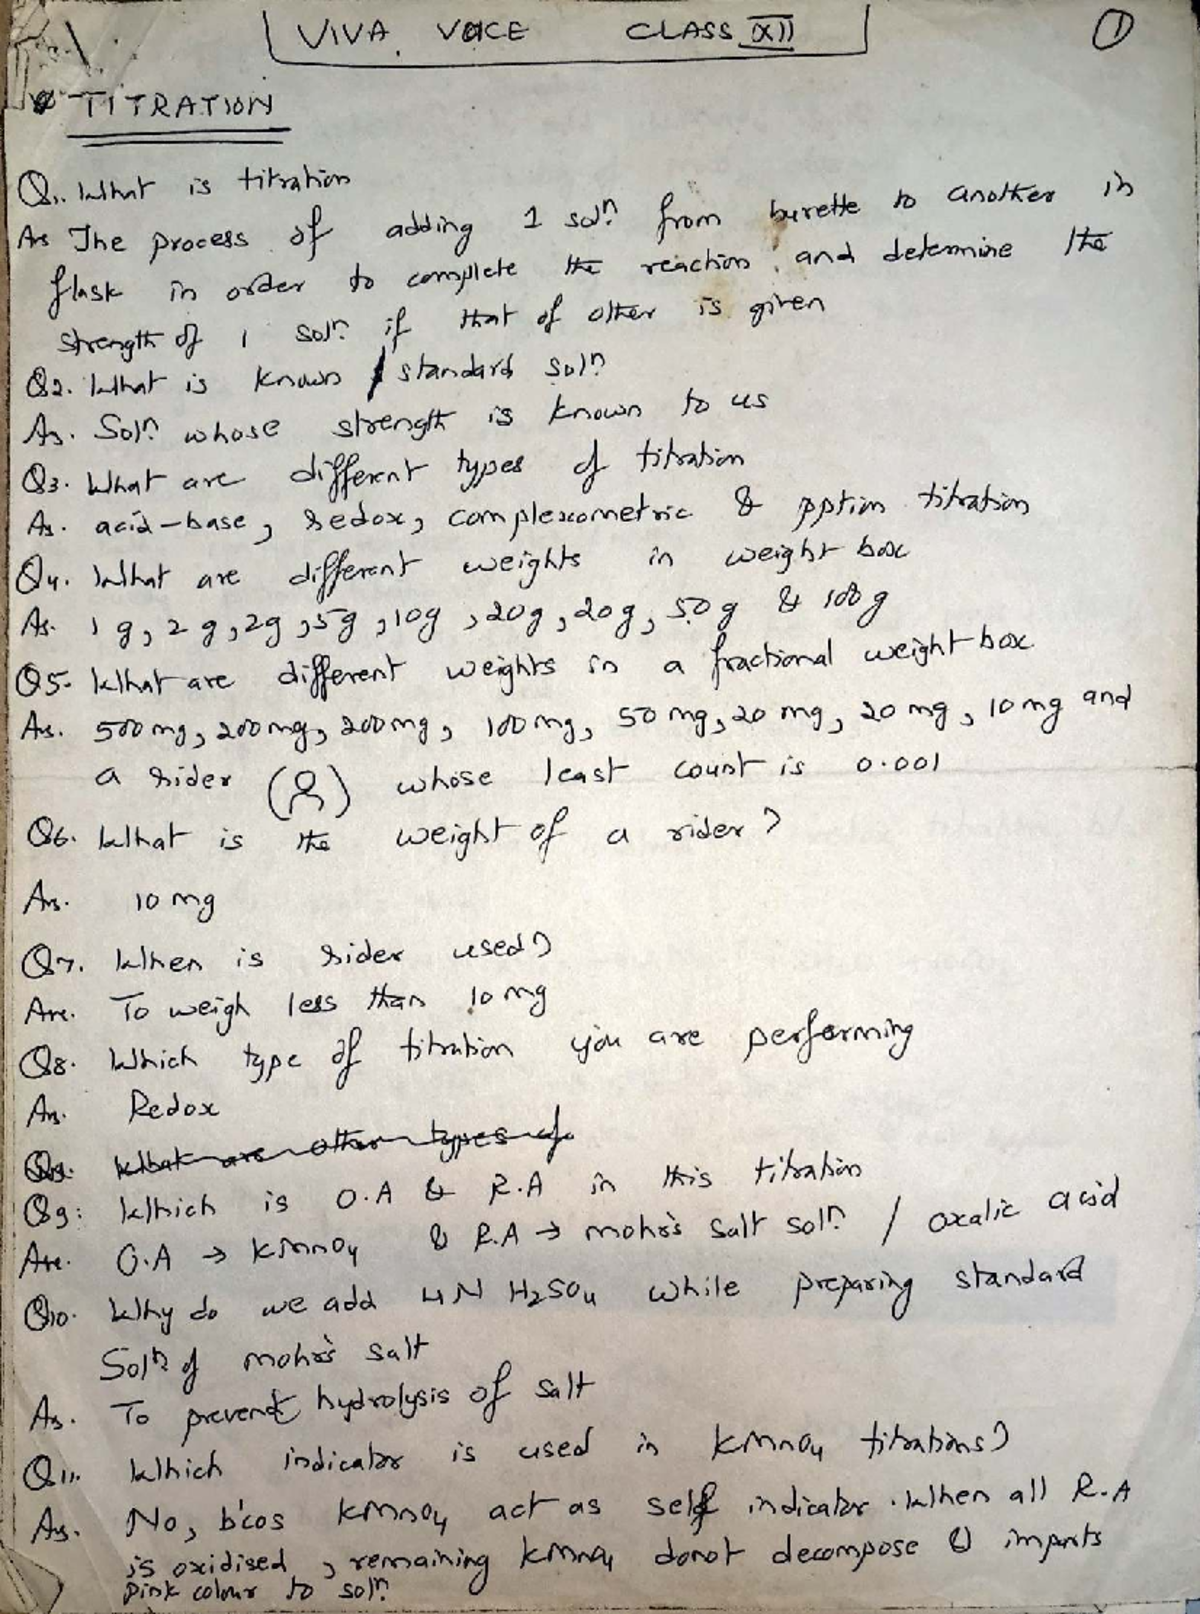 VIVA VOICE CLASS XII
1
TITRATION
Q1. What is titration
As The process of adding 1 solⁿ from burette to another in
flask in order to complete the reaction and determine the
strength of 1 solⁿ if that of other is given
Q2. What is known / standard solⁿ
As. Solⁿ whose strength is known to us
Q3. What are different types of titration
As. acid-base, redox, complexometric & pption titration
Q4. What are different weights in weight box
As. 1g, 2g, 2g, 5g, 10g, 20g, 20g, 50g & 100g
Q5. What are different weights in a fractional weight box
As. 500mg, 200mg, 200mg, 100mg, 50mg, 20mg, 20mg, 10mg and
a rider ( ) whose least count is 0.001
Q6. What is the weight of a rider?
As. 10mg
Q7. When is rider used?
An. To weigh less than 10mg
Q8. Which type of titration you are performing
An. Redox
Q9. What are other types of
Q9: Which is O.A & R.A in this titration
An. O.A → KMnO4 & R.A → mohr's salt solⁿ / oxalic acid
Q10. Why do we add 4N H2SO4 while preparing standard
Solⁿ of mohr's salt
As. To prevent hydrolysis of salt
Q11. Which indicator is used in KMnO4 titrations?
As. No, b'cos KMnO4 act as self indicator. When all R.A
is oxidised, remaining KMnO4 donot decompose & imparts
pink colour to solⁿ